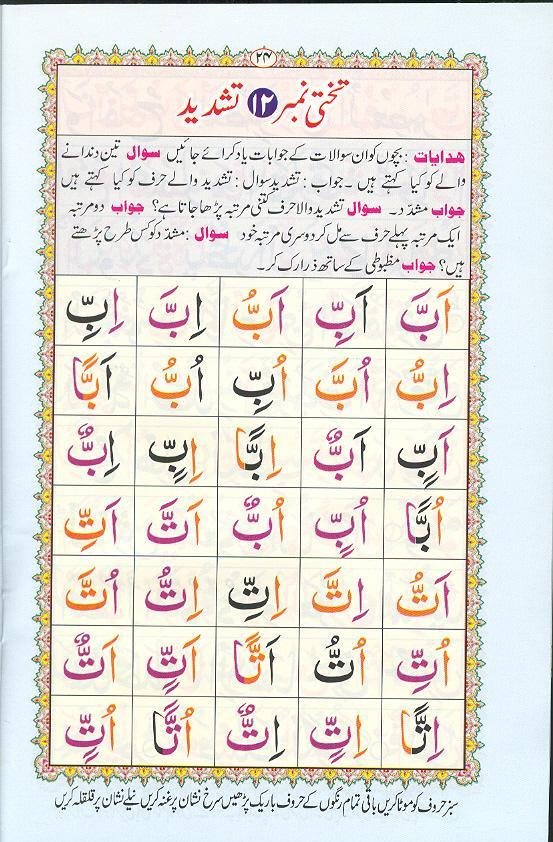 ۲۴
تختی نمبر ۱۲ تشدید
ھدایات : بچوں کو ان سوالات کے جوابات یاد کرائے جائیں سوال تین دندانے
والے کو کیا کہتے ہیں ۔ جواب : تشدید سوال : تشدید والے حرف کو کیا کہتے ہیں
جواب مشدّد۔ سوال تشدید والا حرف کتنی مرتبہ پڑھا جاتا ہے؟ جواب دو مرتبہ
ایک مرتبہ پہلے حرف سے مل کر دوسری مرتبہ خود سوال : مشدّد کو کس طرح پڑھتے
ہیں؟ جواب مظبوطی کے ساتھ ذرا رک کر۔
اَبَّ اَبِّ اَبُّ اِبَّ اِبِّ
اِبُّ اُبَّ اُبِّ اُبُّ اَبًّا
اَبٍّ اَبٌّ اِبًّا اِبٍّ اِبٌّ
اُبًّا اُبٍّ اُبٌّ اَتَّ اَتِّ
اَتُّ اِتَّ اِتِّ اِتُّ اُتَّ
اُتِّ اُتُّ اَتًّا اَتٍّ اَتٌّ
اِتًّا اِتٍّ اِتٌّ اُتًّا اُتٍّ
سبز حروف کو موٹا کریں باقی تمام رنگوں کے حروف باریک پڑھیں سرخ نشان پر غنہ کریں نیلے نشان پر قلقلہ کریں